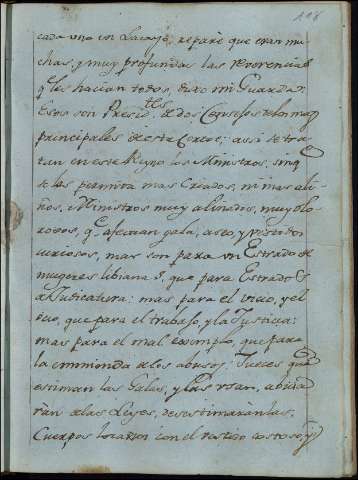 118
cada uno un Lacayo, reparè que eran mu-
chas, y muy profundas las reverencias
q̃ les hacian todos, dixo mi Guarda:
Estos son Presid.tes de dos Consejos de los mas
principales de esta Corte; assi se tra-
tan en este Reyno los Ministros, sin q̃
se les permita mas Criados, ni mas ali-
ños. Ministros muy aliñados, muy olo-
rosos, q̃ afectan gala, aseo, y vestidos
curiosos, mas son para un Estrado de
mugeres libianas, que para Estrado
de Judicatura: mas para el vicio, y el
ocio, que para el trabajo, y la Justicia:
mas para el mal exemplo, que para
la enmienda de los abusos; Jueces que
estiman las Galas, y las usan,
ràn de las Leyes, desestimaranlas.
Cuerpos con el vestido costoso, y